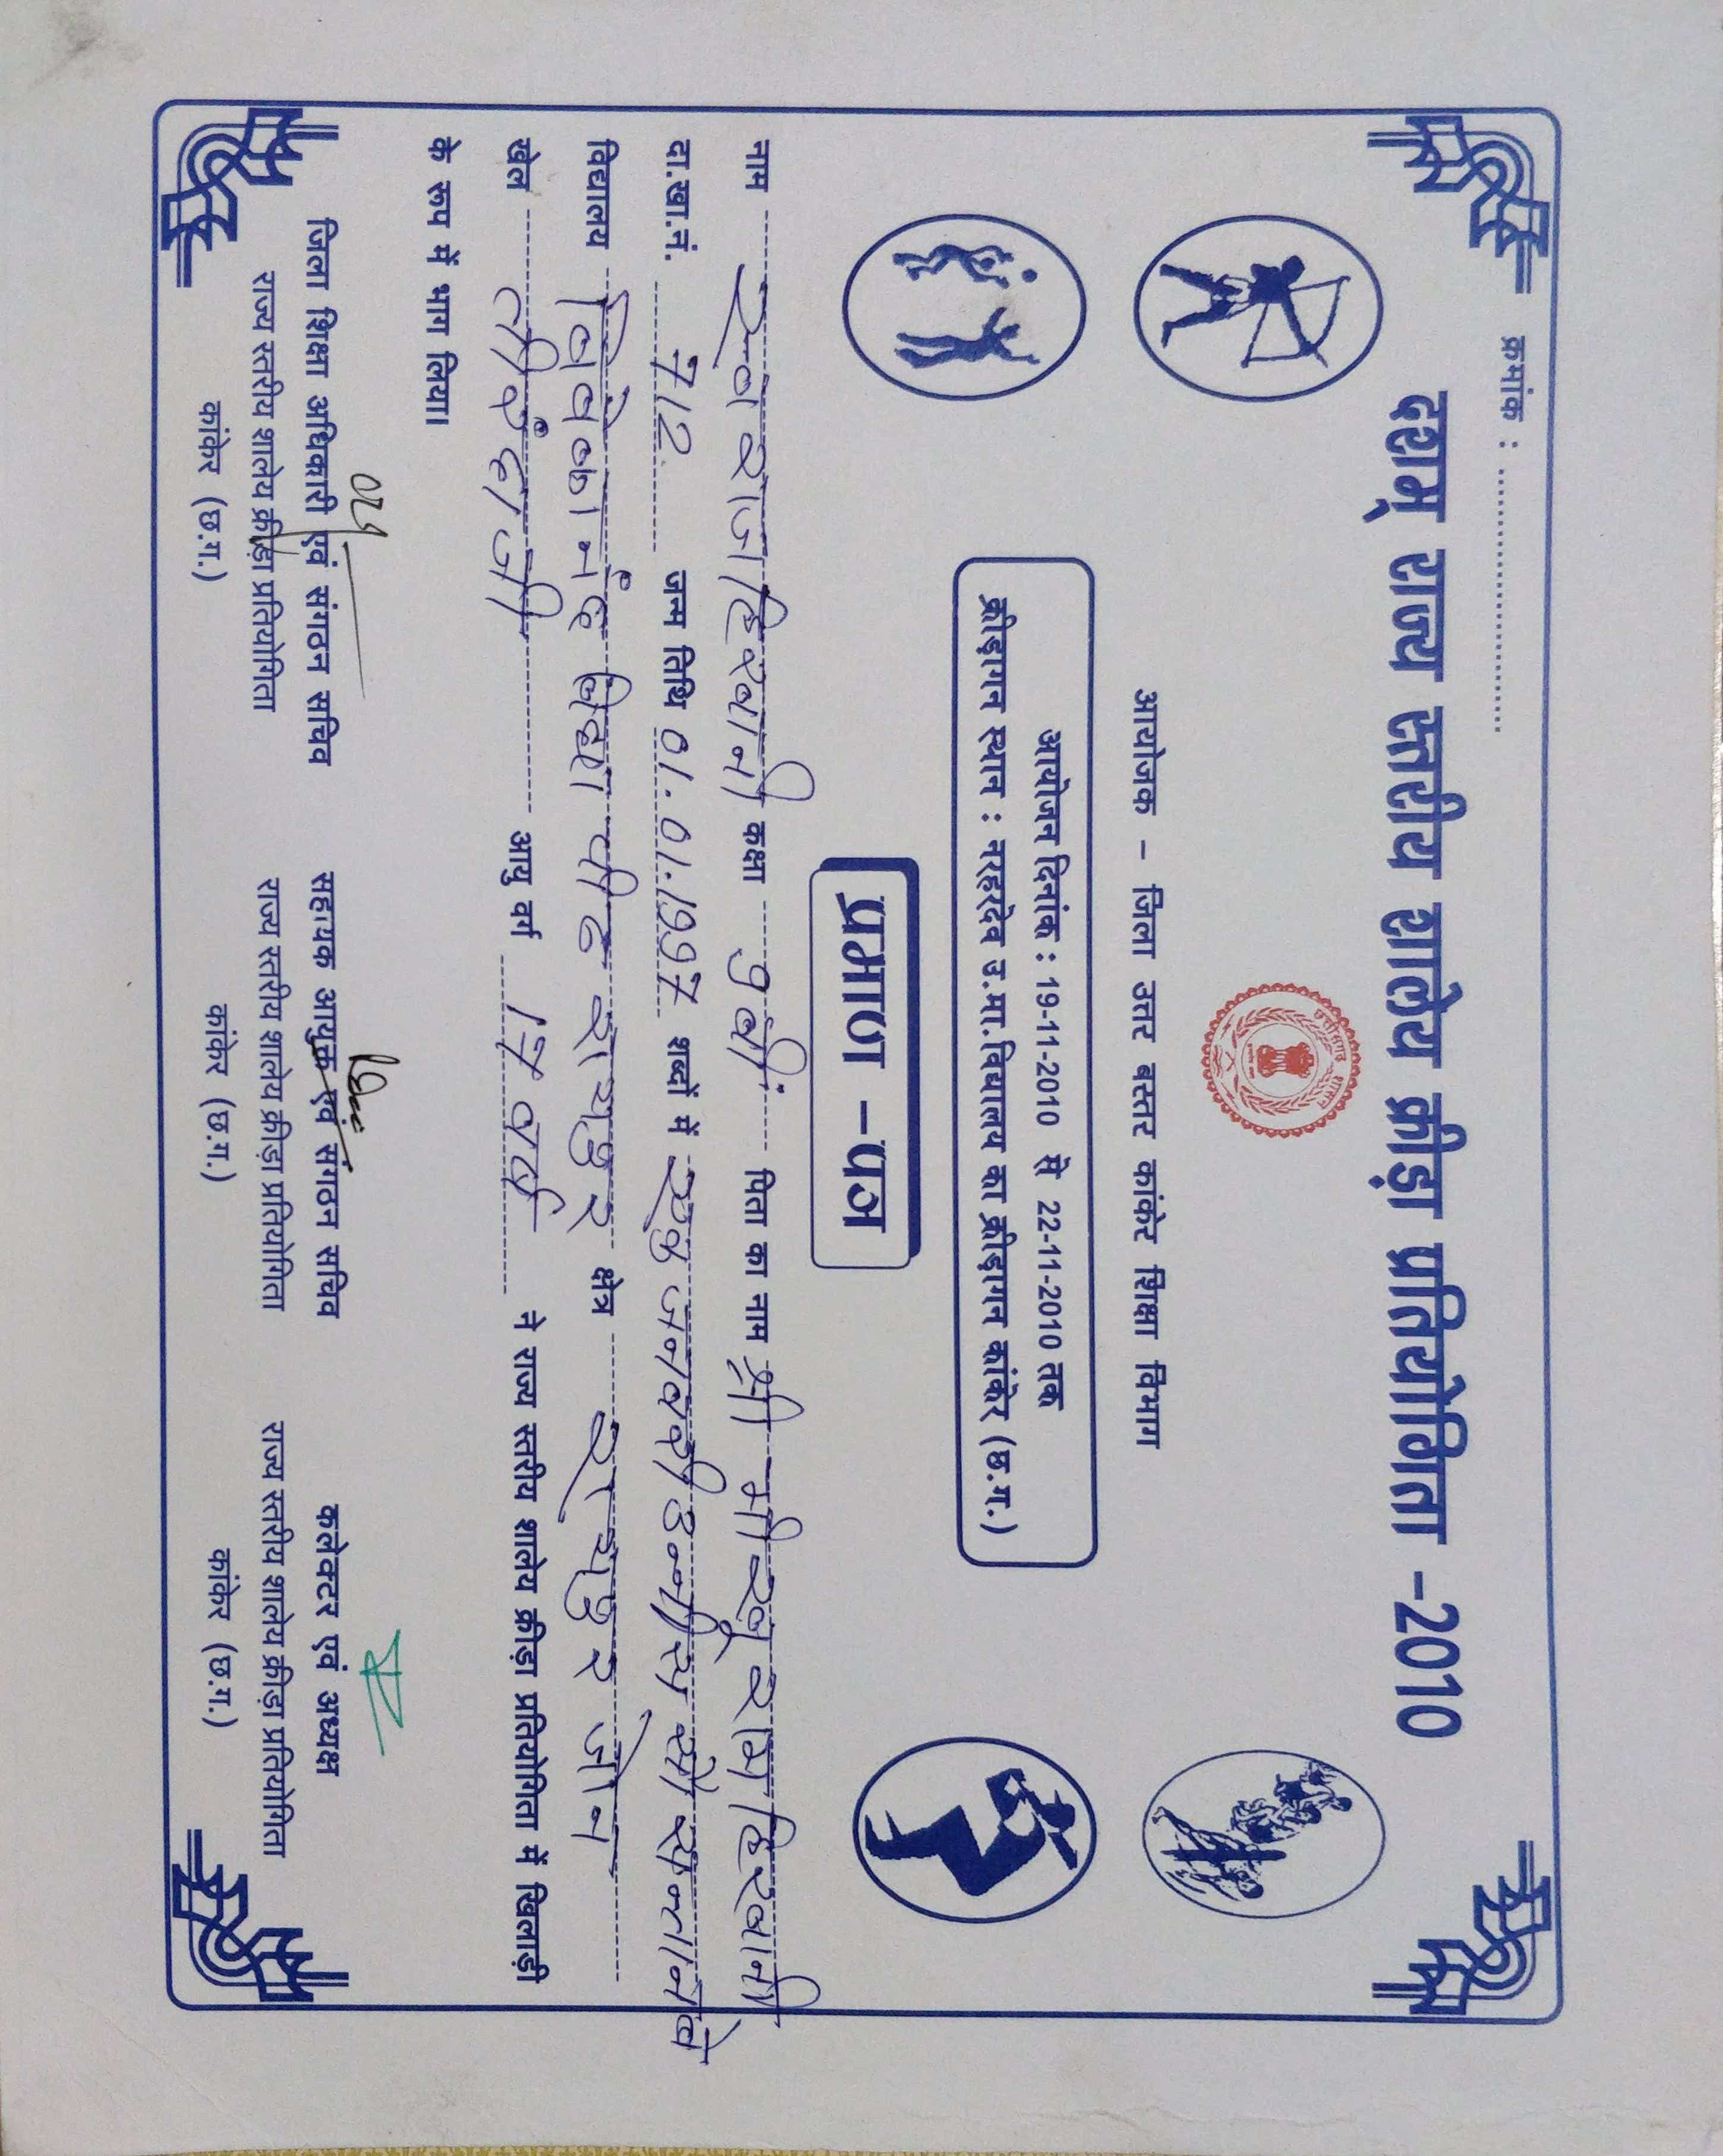 क्रमांक : ........................
दशम् राज्य स्तरीय शालेय क्रीड़ा प्रतियोगिता -2010
आयोजक - जिला उत्तर बस्तर कांकेर शिक्षा विभाग
आयोजन दिनांक : 19-11-2010 से 22-11-2010 तक
क्रीड़ागन स्थान : नरहरदेव उ.मा.विद्यालय का क्रीड़ागन कांकेर (छ.ग.)
प्रमाण -पत्र
नाम राज हिरवानी कक्षा 9 वीं पिता का नाम श्री भीखू राम हिरवानी
दा.खा.नं. 712 जन्म तिथि 01.01.1997 शब्दों में एक जनवरी उन्नीस सौ सन्तानवे
विद्यालय विवेकानंद विद्या पीठ रायपुर क्षेत्र रायपुर जोन
खेल तीरंदाजी आयु वर्ग 17 वर्ष ने राज्य स्तरीय शालेय क्रीड़ा प्रतियोगिता में खिलाड़ी
के रूप में भाग लिया।
जिला शिक्षा अधिकारी एवं संगठन सचिव सहायक आयुक्त एवं संगठन सचिव कलेक्टर एवं अध्यक्ष
राज्य स्तरीय शालेय क्रीड़ा प्रतियोगिता राज्य स्तरीय शालेय क्रीड़ा प्रतियोगिता राज्य स्तरीय शालेय क्रीड़ा प्रतियोगिता
कांकेर (छ.ग.) कांकेर (छ.ग.) कांकेर (छ.ग.)